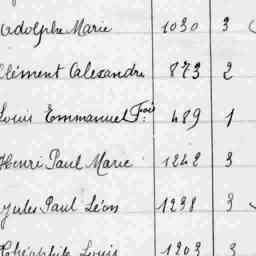 Adolphe Marie 1030 3
Clément Alexandre 873 2
Louis Emmanuel Fois 489 1
Henri Paul Marie 1242 3
Jules Paul Léon 1238 3
Théophile Louis 1203 3